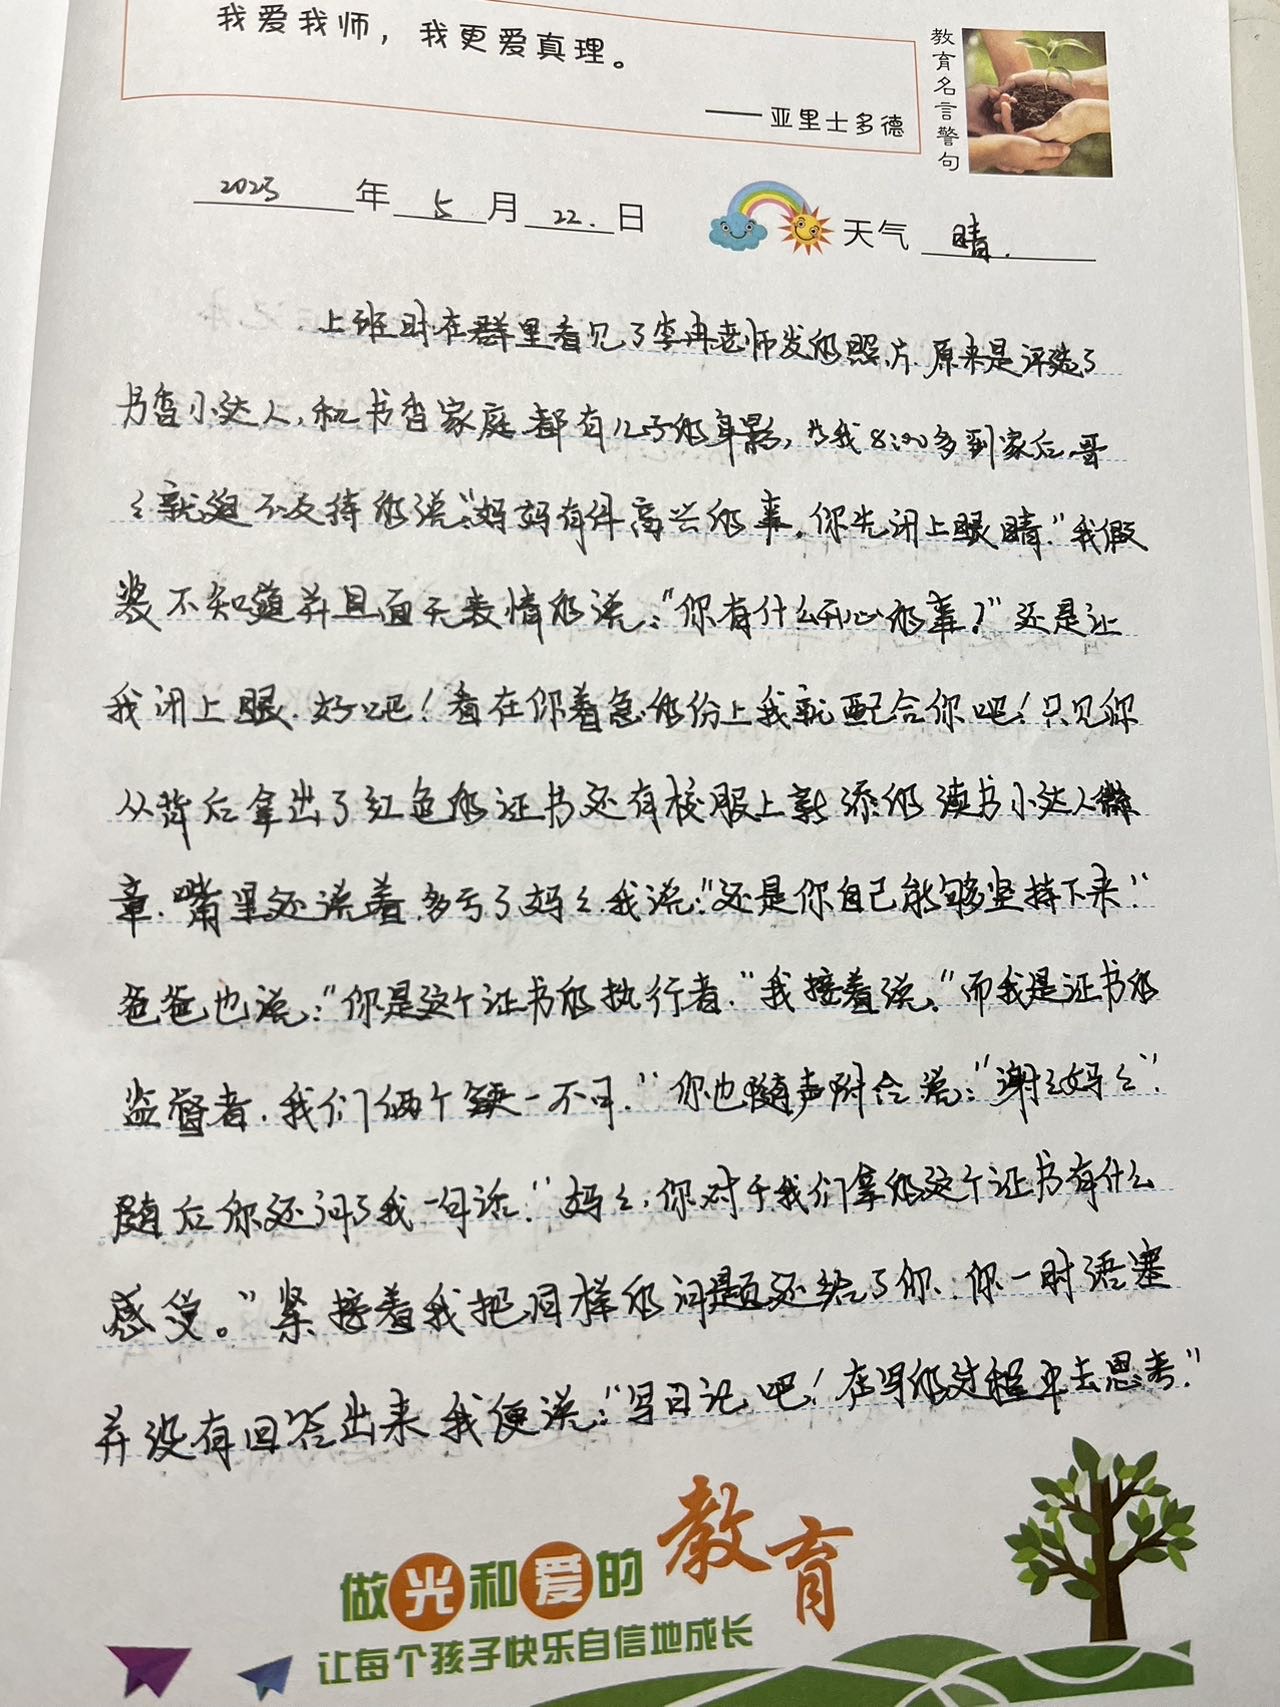 我爱我师，我更爱真理。
——亚里士多德
教育名言警句
2023年5月22.日 天气 晴.
上班时在群里看见了李冉老师发的照片.原来是评选了
书香小达人,和书香家庭都有儿子的身影,当我8:00多到家后,哥
々就迫不及待的说:"妈妈有件高兴的事,你先闭上眼睛."我假
装不知道并且面无表情的说:"你有什么开心的事?"还是让
我闭上眼.好吧!看在你着急的份上我就配合你吧!只见你
从背后拿出了红色的证书还有校服上新添的读书小达人徽
章.嘴里还说着.多亏了妈々.我说:"还是你自己能够坚持下来."
爸爸也说:"你是这个证书的执行者."我接着说:"而我是证书的
监督者.我们俩个缺一不可."你也随声附合说:"谢々妈々".
随后你还问了我一句话."妈々,你对于我们拿的这个证书有什么
感受。"紧接着我把同样的问题还给了你.你一时语塞
并没有回答出来我便说:"写日记吧!在写的过程中去思考."
做光和爱的教育
让每个孩子快乐自信地成长